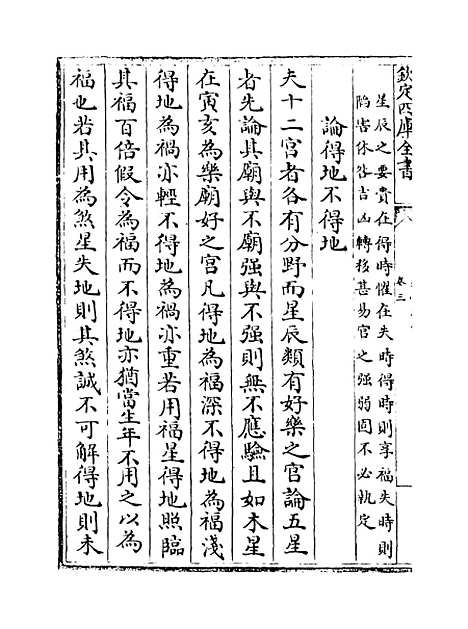 欽定四庫全書
卷三
星辰之要貴在得時懼在失時得時則享福失時則
陷害休咎吉凶轉移甚易宫之强弱固不必執定
論得地不得地
夫十二宫者各有分野而星辰類有好樂之宫論五星
者先論其廟與不廟强與不强則無不應驗且如木星
在寅亥為樂廟好之宫凡得地為福深不得地為福淺
得地為禍亦輕不得地為禍亦重若用福星得地照臨
其福百倍假令為福而不得地亦猶當生年不用之以為
福也若其用為煞星失地則其煞誠不可解得地則未